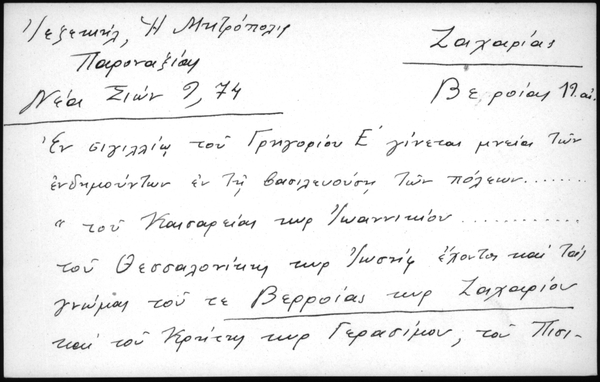 Ἰεζεκιήλ, Ἡ Μητρόπολις
Παροναξίας
Νέα Σιών 9, 74
Ζαχαρίας
Βεροίας 19. αἰ.
Ἐν σιγιλλίῳ τοῦ Γρηγορίου Ε΄ γίνεται μνεία τῶν
ἐνδημούντων ἐν τῇ βασιλευούσῃ τῶν πόλεων........
" τοῦ Καισαρείας κυρ Ἰωαννικίου ............
τοῦ Θεσσαλονίκης κυρ Ἰωσήφ ἔχοντος καὶ τάς
γνώμας τοῦ τε Βερροίας κυρ Ζαχαρίου
καὶ τοῦ Κρήτης κυρ Γερασίμου, τοῦ Πισι-